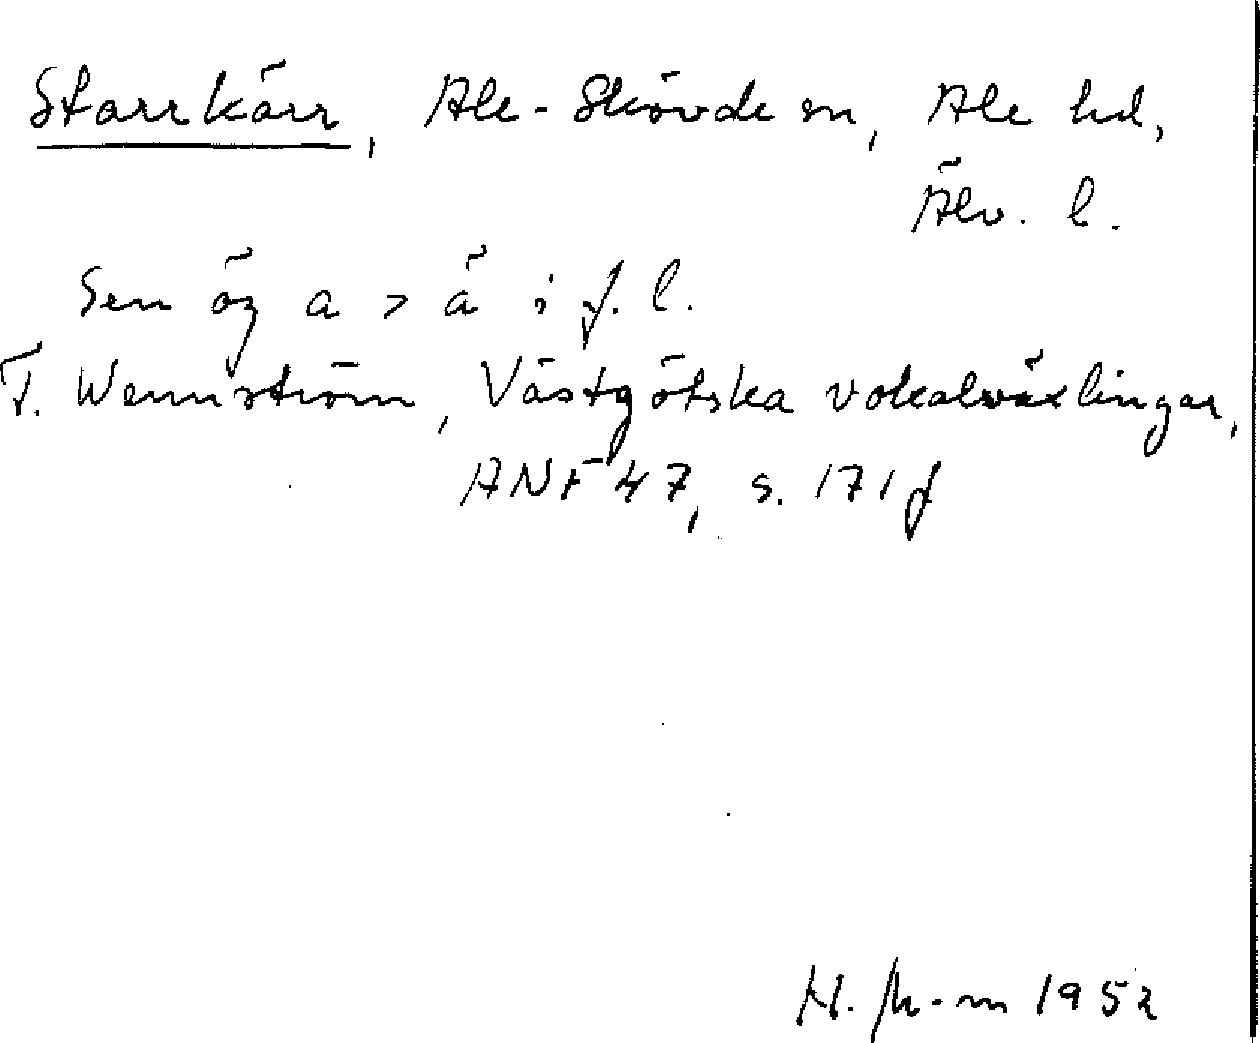 Starrkärr, Ale-Skövde sn, Ale hd,
Älv. l.
Sen övg a > ä i f. l.
T. Wennström, Västgötska vokalväxlingar,
ANF 47, s. 171 f
H. M-m 1952